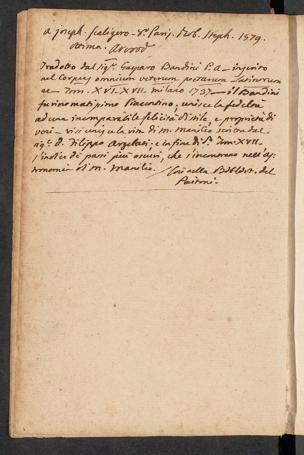 a Joseph. Scaligero. 8.° Paris. Rob. Steph. 1579.
ottima.
Tradotto dal Sig.r Gasparo Bandini P. A. inserito
nel Corpus omnium veterum poetarum Latinorum
Tom. XVI. XVII. Milano 1737. — il Bandini
fu rinomatissimo Piacentino; unisce la fedeltà
ad una incomparabile felicità di stile, e proprietà di
versi — vi si unisce la vita di M. Manilio scritta dal
Sig.r D. Filippo Argelati; e in fine di d.° Tom. XVII.
l'indice de' passi più oscuri, che s'incontrano nell'As-
tronomicon di M. Manilio. Così nella Bibliot. del
Paitoni.